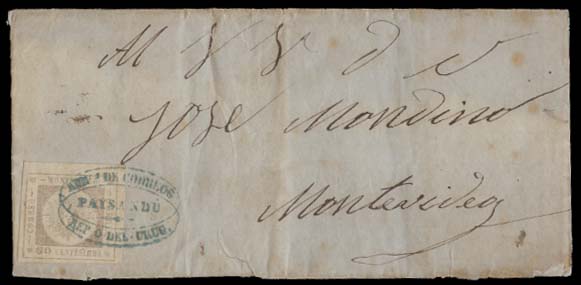 Al
José Mondino
Montevideo
ADMON DE CORREOS
PAYSANDÚ
REP. O. DEL URUG.
60 CENTESIMOS